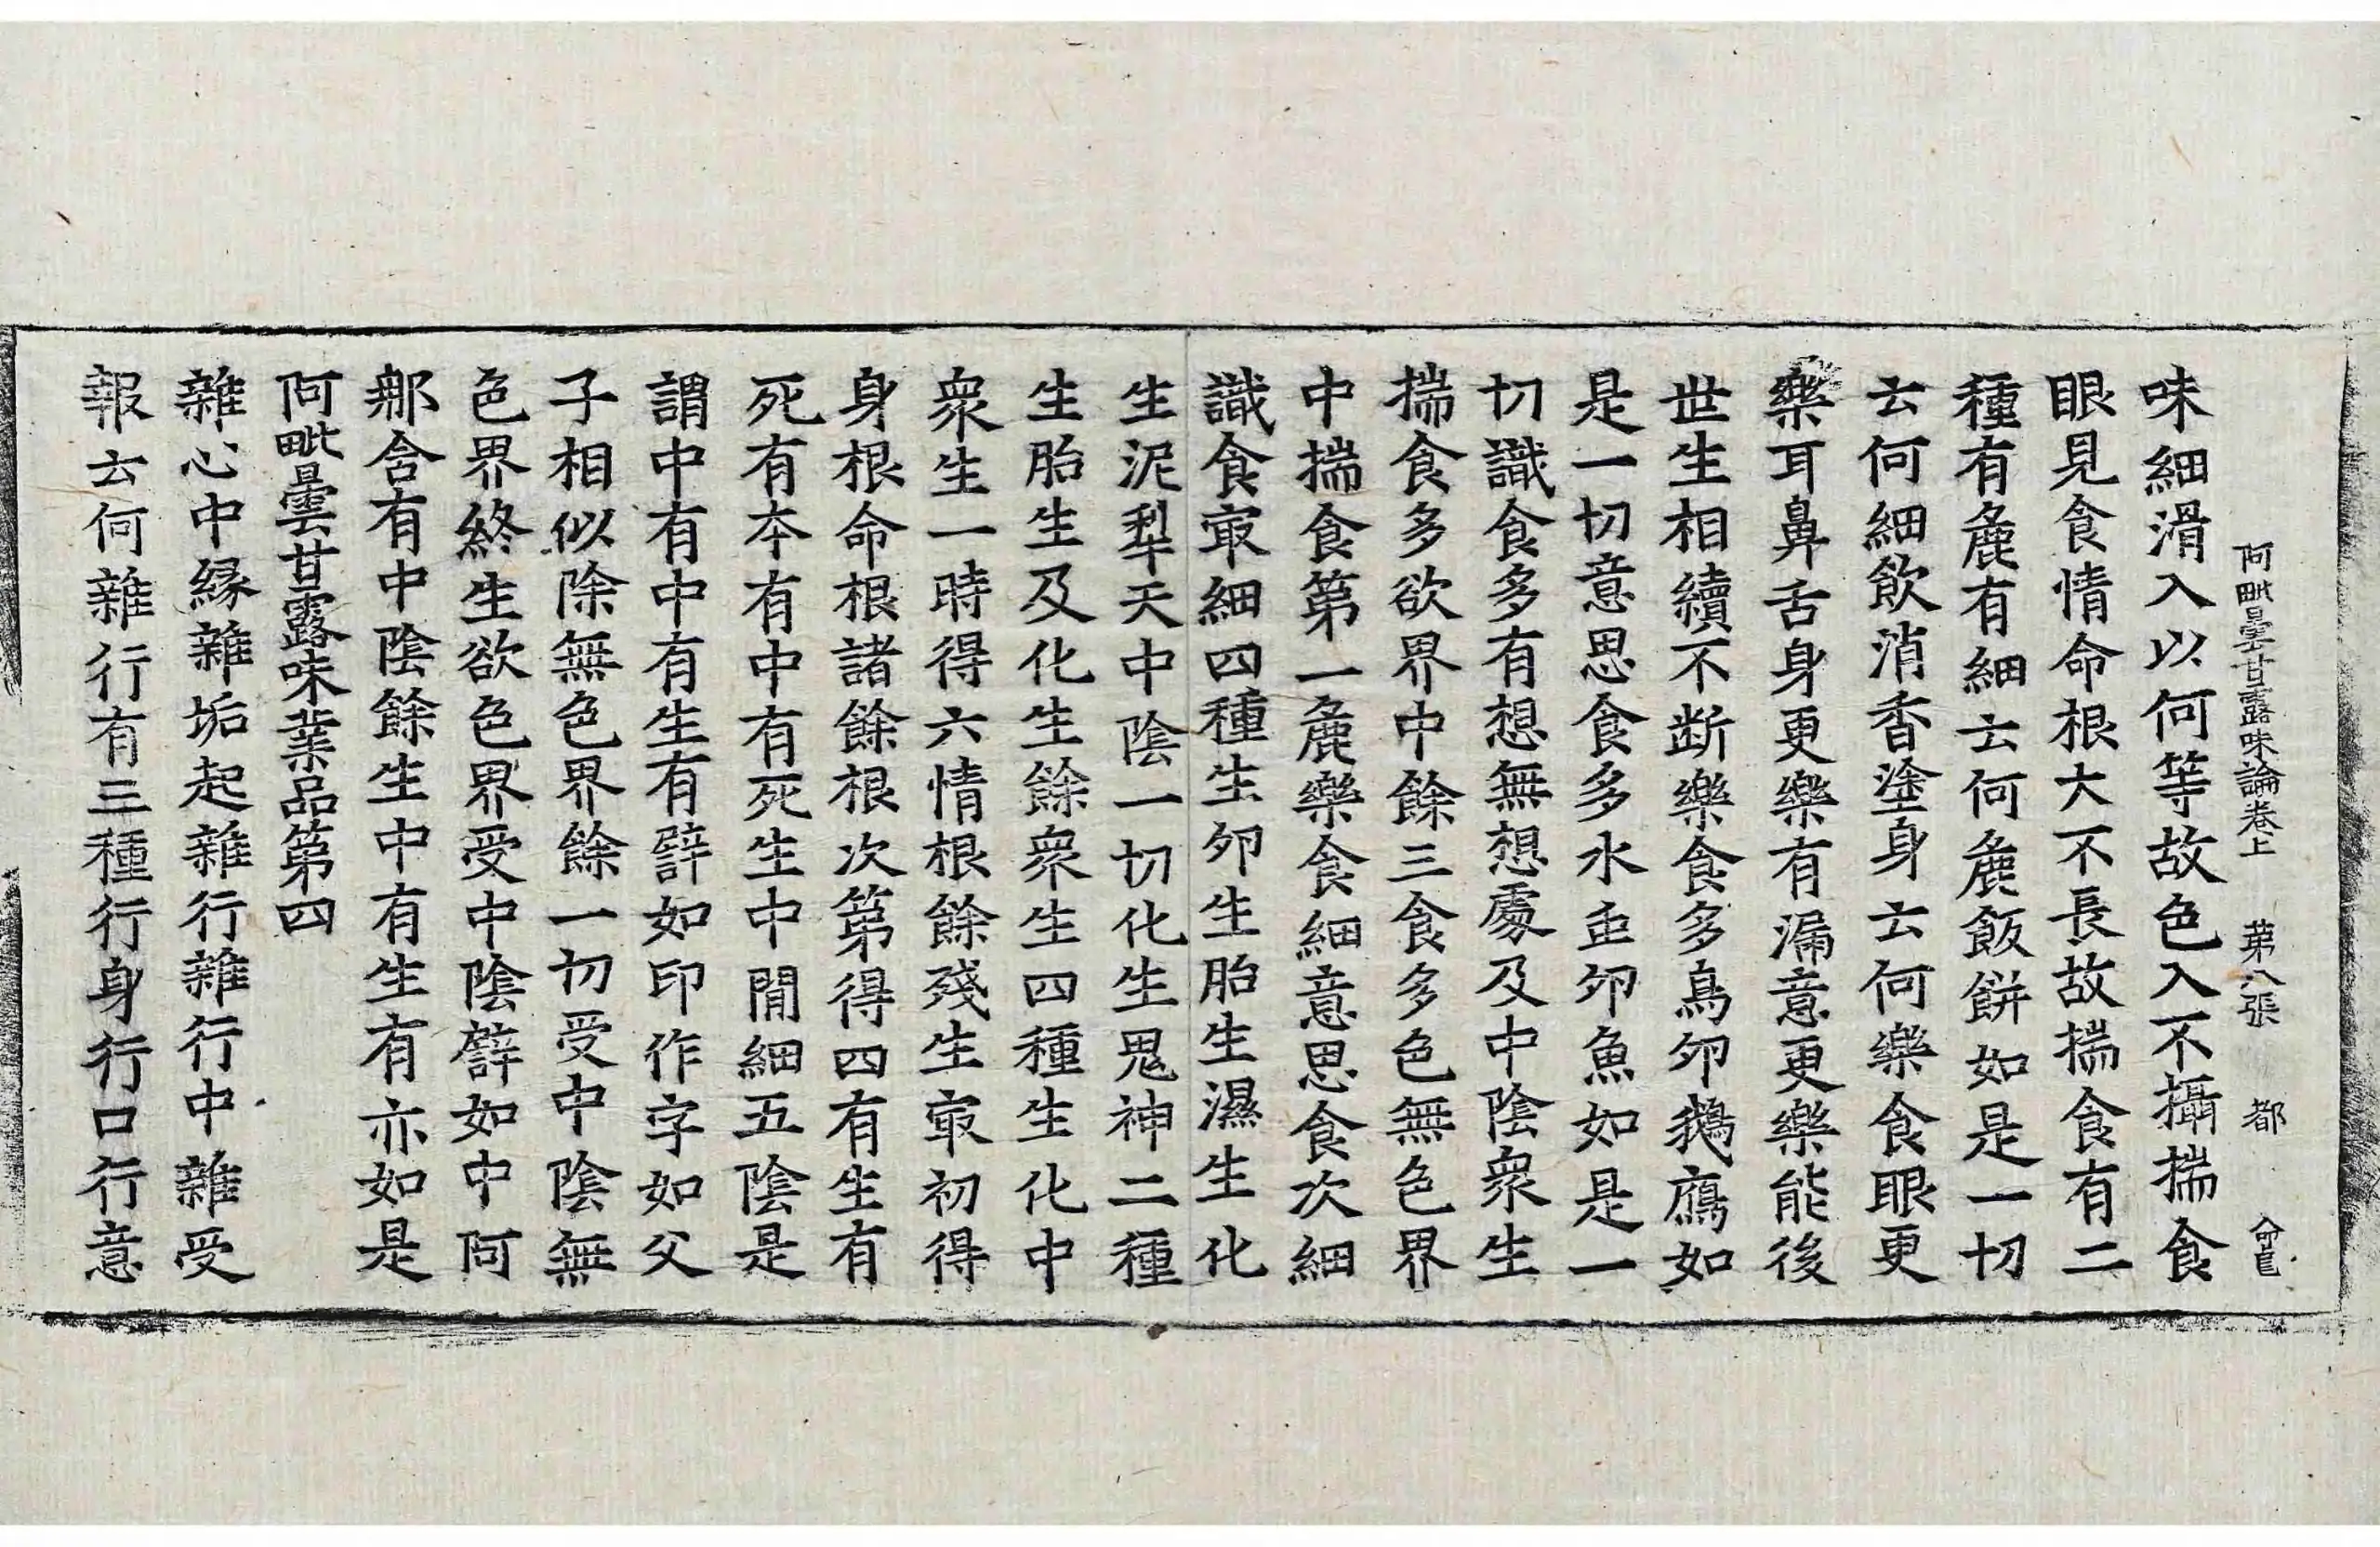 阿毗曇甘露味論卷上 第八張 都
味細滑入以何等故色入不攝揣食
眼見食情命根大不長故揣食有二
種有麁有細云何麁飯餅如是一切
云何細飲消香塗身云何樂食眼更
樂耳鼻舌身更樂有漏意更樂能後
世生相續不断樂食多鳥夘鵝鴈如
是一切意思食多水虫夘魚如是一
切識食多有想無想處及中陰衆生
揣食多欲界中餘三食多色無色界
中揣食第一麁樂食細意思食次細
識食㝡細四種生夘生胎生濕生化
生泥犁天中陰一切化生鬼神二種
生胎生及化生餘衆生四種生化中
衆生一時得六情根餘殘生㝡初得
身根命根諸餘根次第得四有生有
死有本有中有死生中間細五陰是
謂中有中有生有譬如印作字如父
子相似除無色界餘一切受中陰無
色界終生欲色界受中陰譬如中阿
那含有中陰餘生中有生有亦如是
阿毗曇甘露味業品第四
雜心中縁雜垢起雜行雜行中雜受
報云何雜行有三種行身行口行意